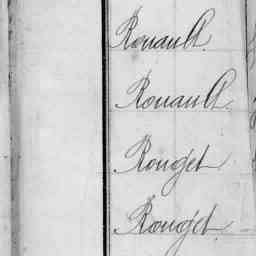 Rouault.
Rouault.
Rouget
Rouget.